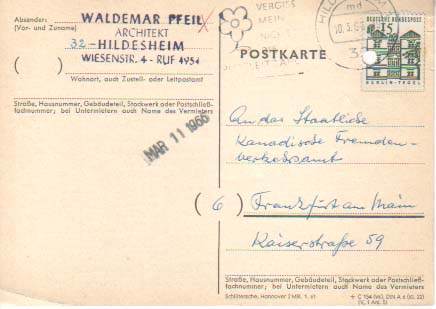 Absender:
(Vor- und Zuname)
WALDEMAR PFEIL
ARCHITEKT
32-HILDESHEIM
WIESENSTR. 4 - RUF 4954
( )
Wohnort, auch Zustell- oder Leitpostamt
Straße, Hausnummer, Gebäudeteil, Stockwerk oder Postschließ-
fachnummer; bei Untermietern auch Name des Vermieters
MAR 11 1966
VERGISS
MEIN
NICHT
HILDESHEIM
md
10.3.66
3
POSTKARTE
DEUTSCHE BUNDESPOST
15
BERLIN-TEGEL
An das Staatliche
Kanadische Fremden-
verkehrsamt
( 6 ) Frankfurt am Main
Kaiserstraße 59
Straße, Hausnummer, Gebäudeteil, Stockwerk oder Postschließ-
fachnummer; bei Untermietern auch Name des Vermieters
+ C 154